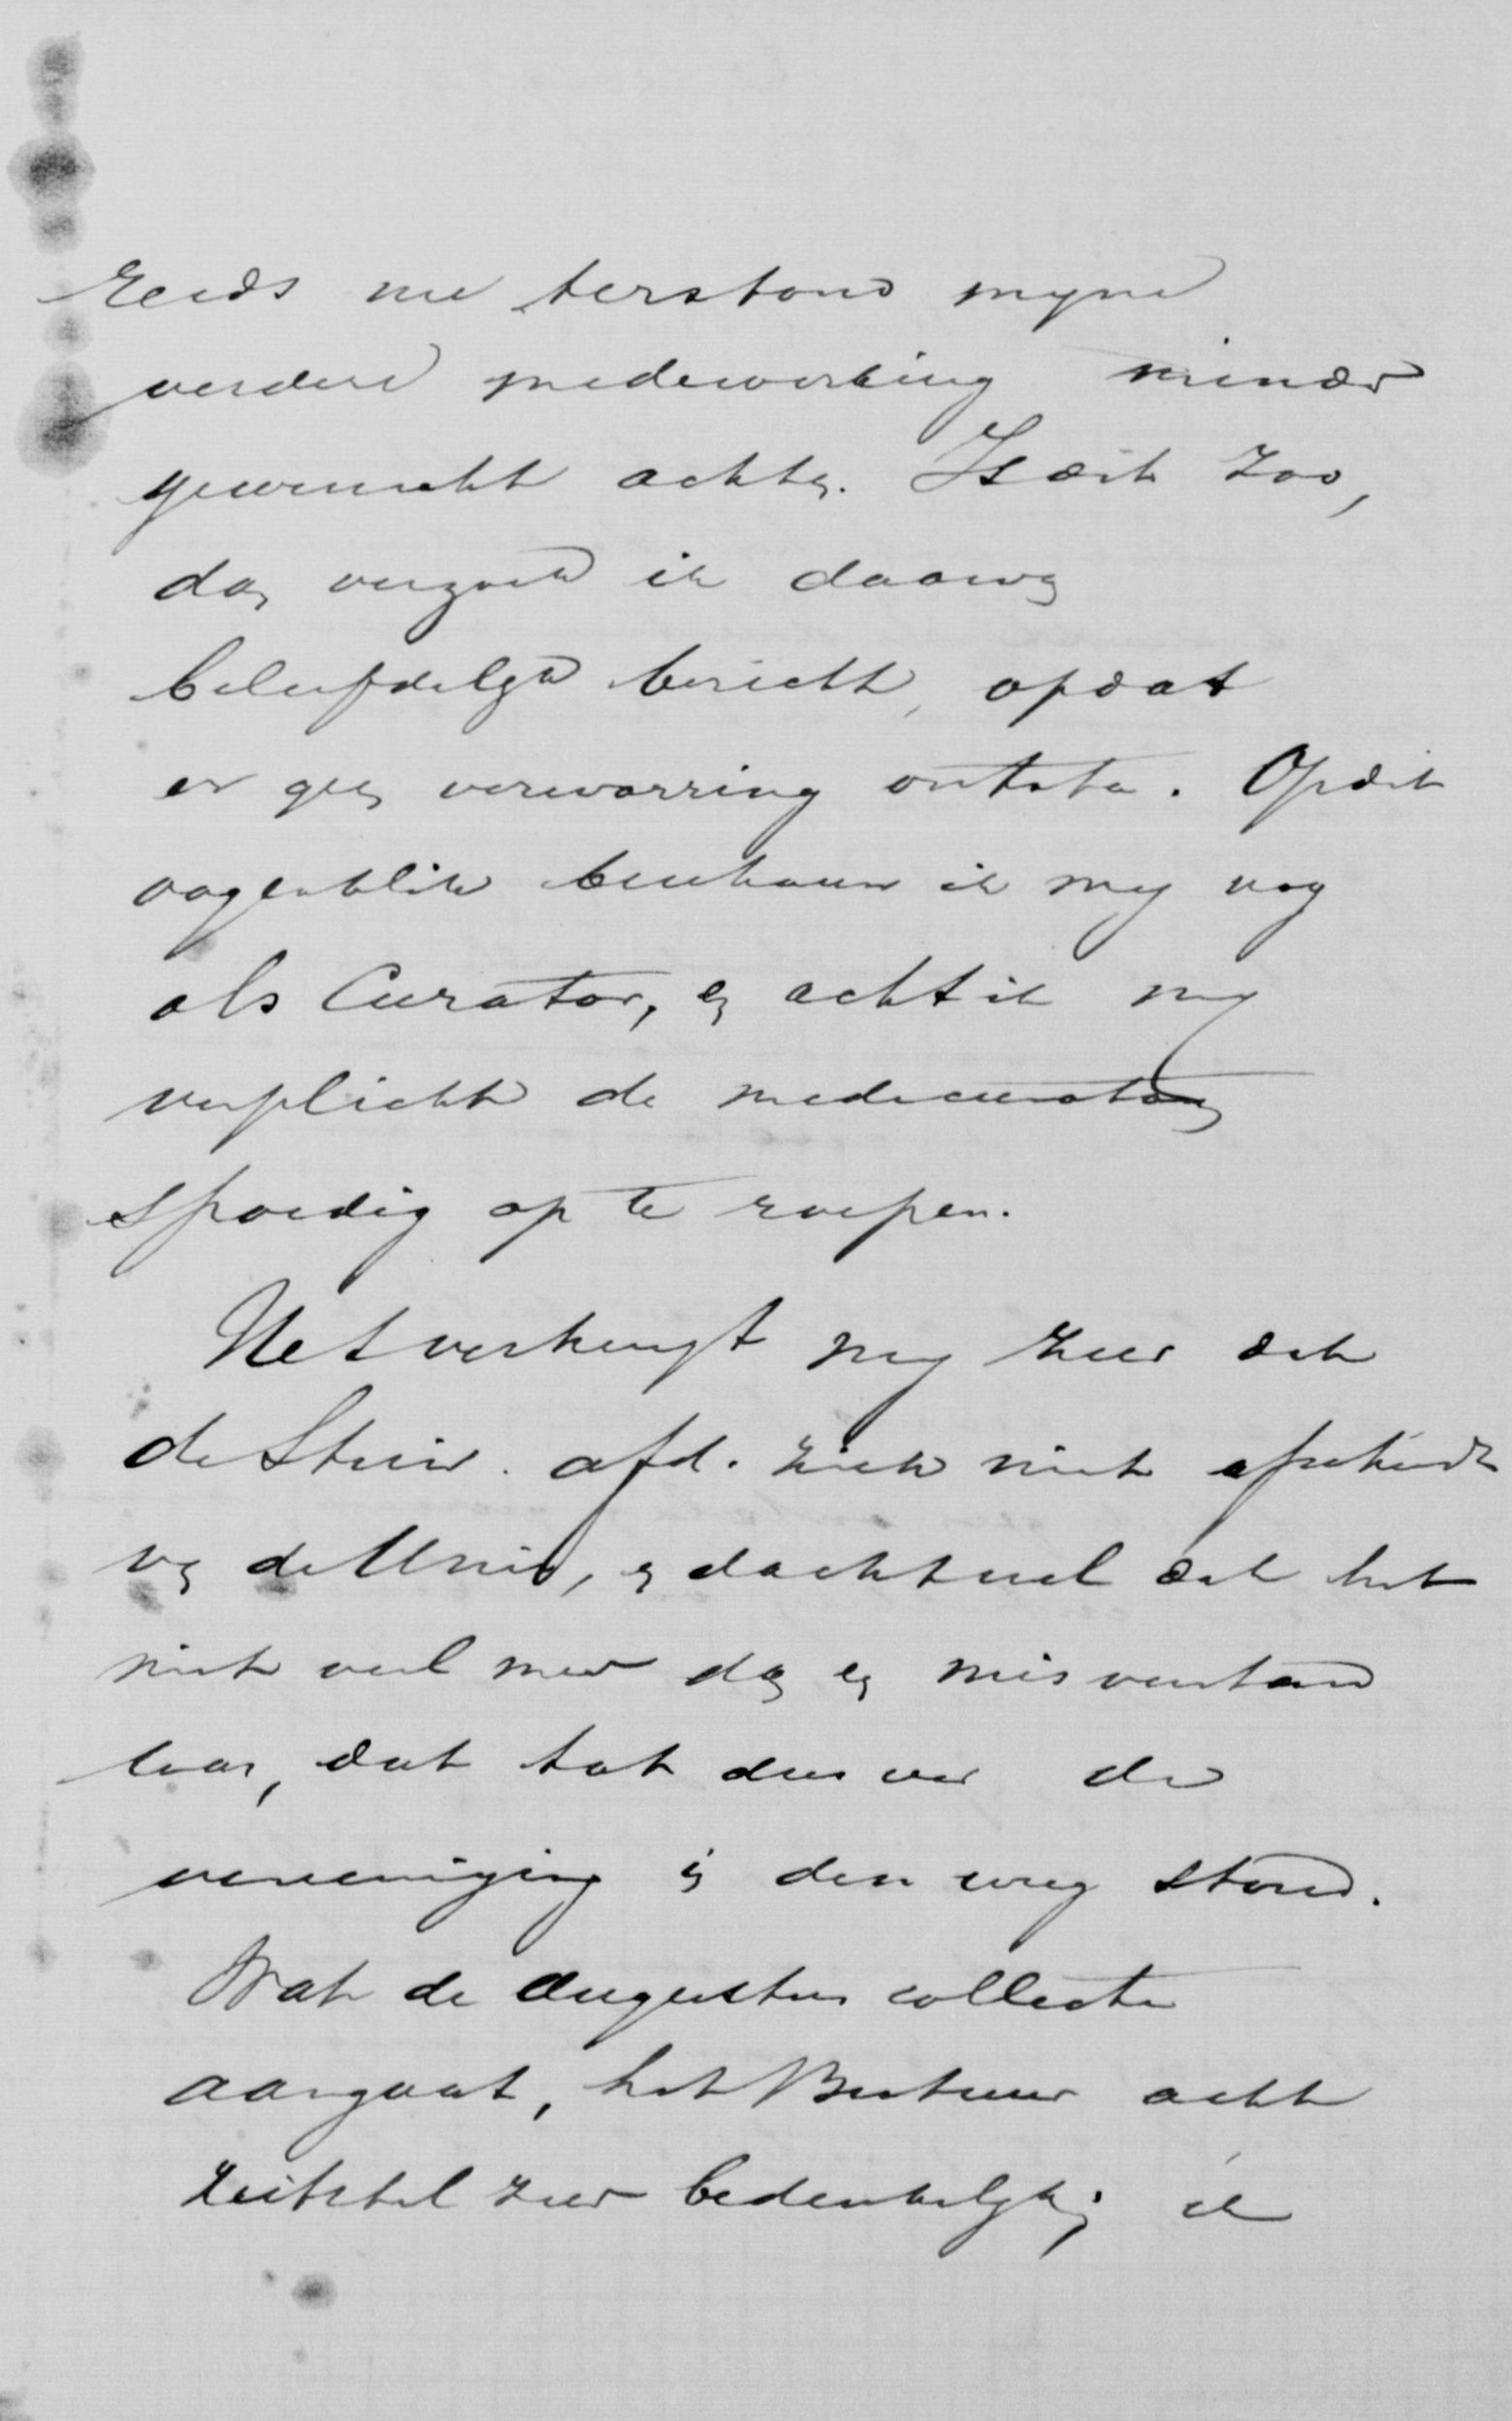 reeds nu terstond myne
verdere medewerking minder
gewenscht achten. Is dit zoo,
dan verzoek ik daarvan
beleefdelyk bericht, opdat
er geen verwarring ontsta. Op dit
oogenblik beschouw ik my nog
als Curator, en acht ik my
verplicht de medecuratoren
spoedig op te roepen.
Het verheugt my zeer dat
de Stud. afd. zich niet afscheidt
van de Unie, en dacht wel dat het
niet veel meer dan een misverstand
was, dat tot dusver de
vereeniging in den weg stond.
Wat de Augustus collecte
aangaat, het Bestuur acht
uitstel zeer bedenkelyk; ik